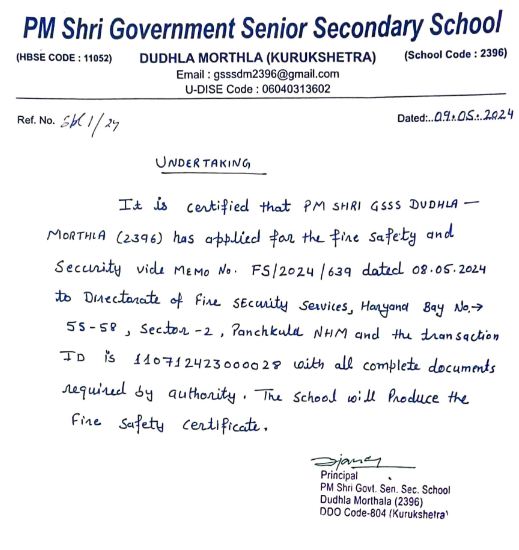 PM Shri Government Senior Secondary School
(HBSE CODE : 11052) DUDHLA MORTHLA (KURUKSHETRA) (School Code : 2396)
Email : gsssdm2396@gmail.com
U-DISE Code : 06040313602
Ref. No. Dated:..09.05.2024
UNDERTAKING
It is certified that PM SHRI GSSS DUDHLA —
MORTHLA (2396) has applied for the fire safety and
Security vide MEMO No. FS/2024/639 dated 08.05.2024
to Directorate of Fire SEcurity Services, Haryana Bay No.→
55-58, Sector-2, Panchkula NHM and the transaction
ID is 11071242300028 with all complete documents
required by authority. The School will Produce the
Fire Safety certificate.
Principal
PM Shri Govt. Sen. Sec. School
Dudhla Morthala (2396)
DDO Code-804 (Kurukshetra)